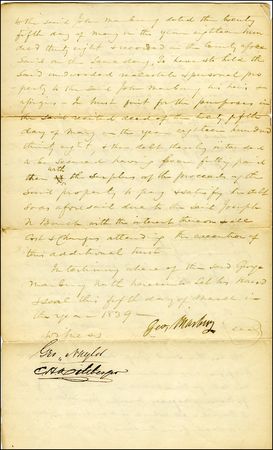 to the said John Marbury dated the twenty
fifth day of May in the year eighteen hun
dred thirty eight & recorded in the County afore
said on the same day, To have & to hold the
said undivided real estate & personal pro-
perty to the said John Marbury, his heirs or
assigns. In trust first for the purposes in
the said recited deed of the twenty fifth
day of May in the year eighteen hundred
thirty eight, & the debt thereby intended
to be secured having been fully paid
then with the surplus of the proceeds of the
said property to pay & satisfy the debt
so as aforesaid due to the said Joseph
N. with the interest thereon & all
Cost & Charges attending the execution of
this additional trust
In testimony whereof the said George
Marbury hath hereunto set his hand
& seal this fifth day of March in
the year 1839 —
Witness
Geo Marbury seal
Geo, Naylor